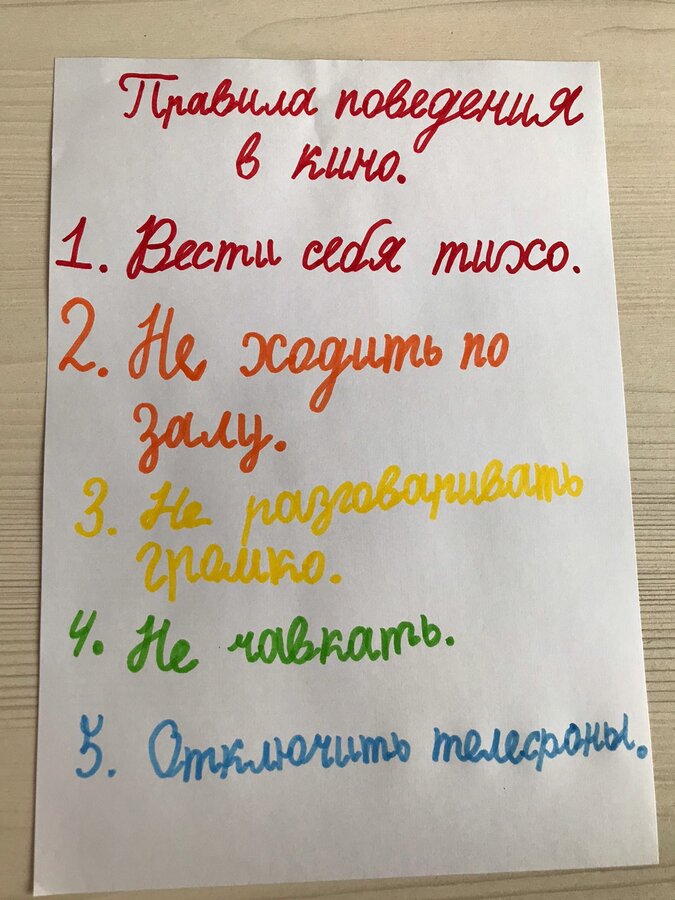 Правила поведения
в кино.
1. Вести себя тихо.
2. Не ходить по
залу.
3. Не разговаривать
громко.
4. Не чавкать.
5. Отключить телефоны.